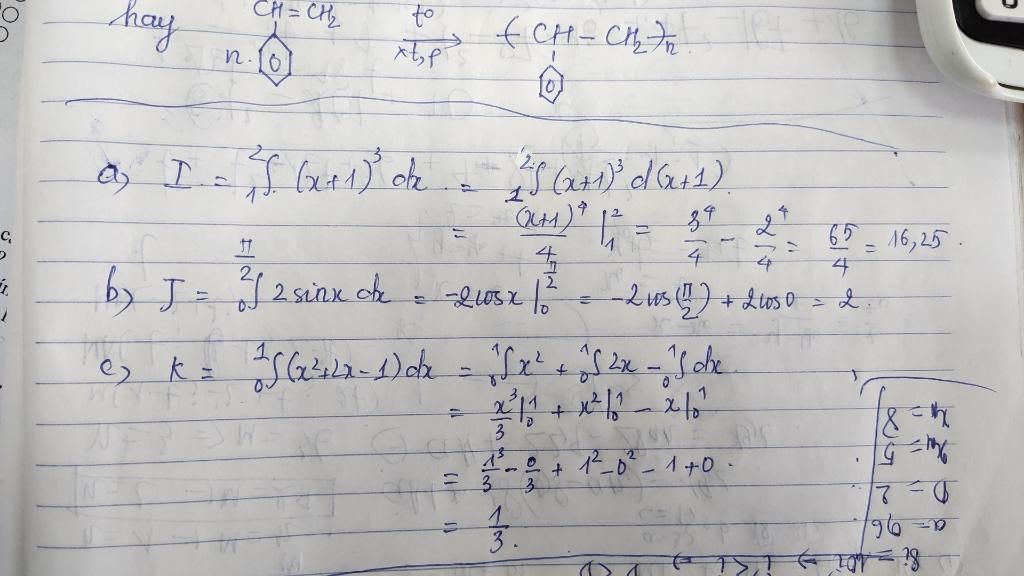 hay n. CH=CH2 t° xt,p (-CH-CH2-)n
a) I = 1∫2 (x+1)^3 dx = 1∫2 (x+1)^3 d(x+1)
= (x+1)^4/4 |1^2 = 3^4/4 - 2^4/4 = 65/4 = 16,25.
b) J = 0∫π/2 2sinx dx = -2cosx |0^π/2 = -2cos(π/2) + 2cos0 = 2.
c) K = 0∫1 (x²+2x-1)dx = 0∫1 x² + 0∫1 2x - 0∫1 dx.
= x³/3 |0^1 + x² |0^1 - x |0^1
= 1³/3 - 0/3 + 1² - 0² - 1 + 0.
= 1/3.
a = 96
D = 2